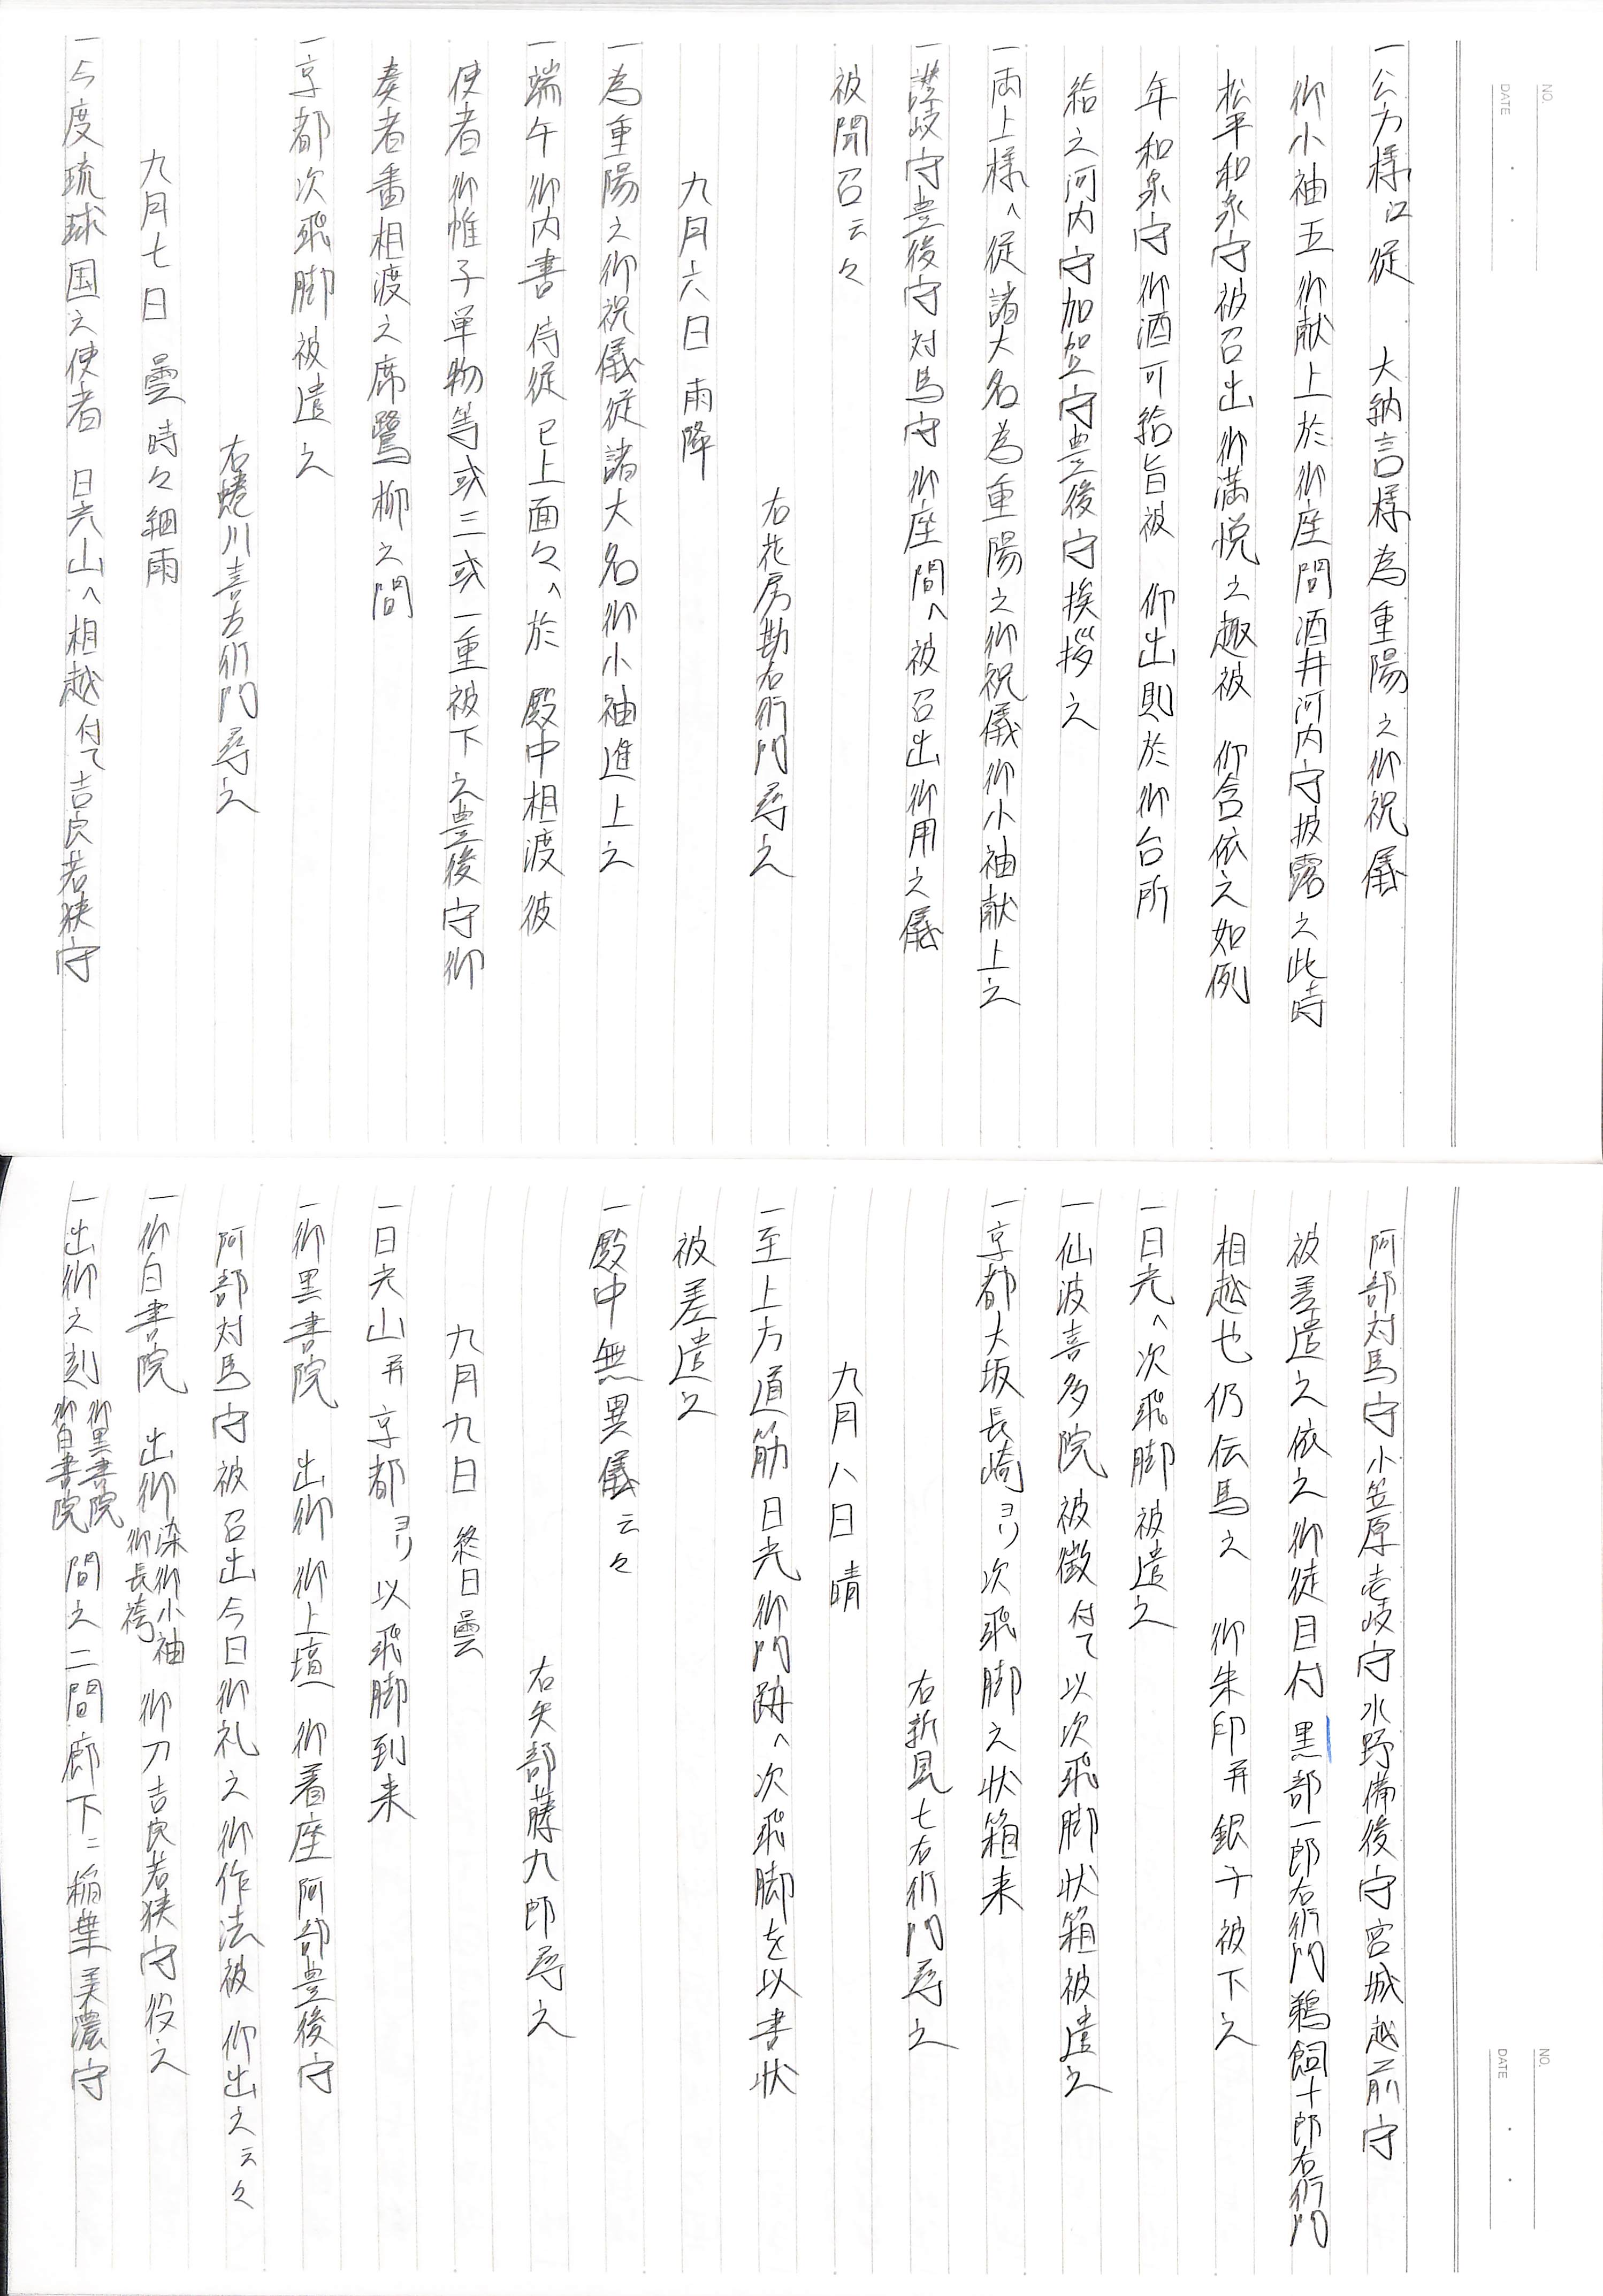 NO.
DATE
一公方様江従　大納言様為重陽之御祝儀
御小袖五御献上於御座間酒井河内守披露之此時
松平和泉守被召出御満悦之趣被　仰含依之如例
年和泉守御酒可給旨被　仰出則於御台所
給之河内守加賀守豊後守挨拶之
一両上様へ従諸大名為重陽之御祝儀御小袖献上之
一讃岐守豊後守対馬守御座間へ被召出御用之儀
被聞召云々
右花房勘右衛門尋之
九月六日雨降
一為重陽之御祝儀従諸大名御小袖進上之
一端午御内書侍従已上面々へ於　殿中相渡彼
使者御帷子単物等或三或一重被下之豊後守御
奏者番相渡之席鷺柳之間
一京都次飛脚被遣之
右蜷川喜右衛門尋之
九月七日　曇　時々細雨
一今度琉球国之使者　日光山へ相越付て吉良若狭守
NO.
DATE
阿部対馬守小笠原壱岐守水野備後守宮城越前守
被差遣之依之御徒目付黒部一郎右衛門鵜飼十郎右衛門
相越也仍伝馬之　御朱印并銀子被下之
一日光へ次飛脚被遣之
一仙波喜多院被徴付て以次飛脚状箱被遣之
一京都大坂長崎ヨリ次飛脚之状箱来
右新見七右衛門尋之
九月八日晴
一至上方道筋日光御門跡へ次飛脚を以書状
被差遣之
一殿中無異儀云々
右矢部藤九郎尋之
九月九日　終日曇
一日光山并京都ヨリ以飛脚到来
一御黒書院　出御御上壇　御着座阿部豊後守
阿部対馬守被召出今日御礼之御作法被　仰出之云々
一御白書院　出御染御小袖御長袴　御刀吉良若狭守役之
一出御之刻御黒書院御白書院間之二間廊下ニ稲葉美濃守